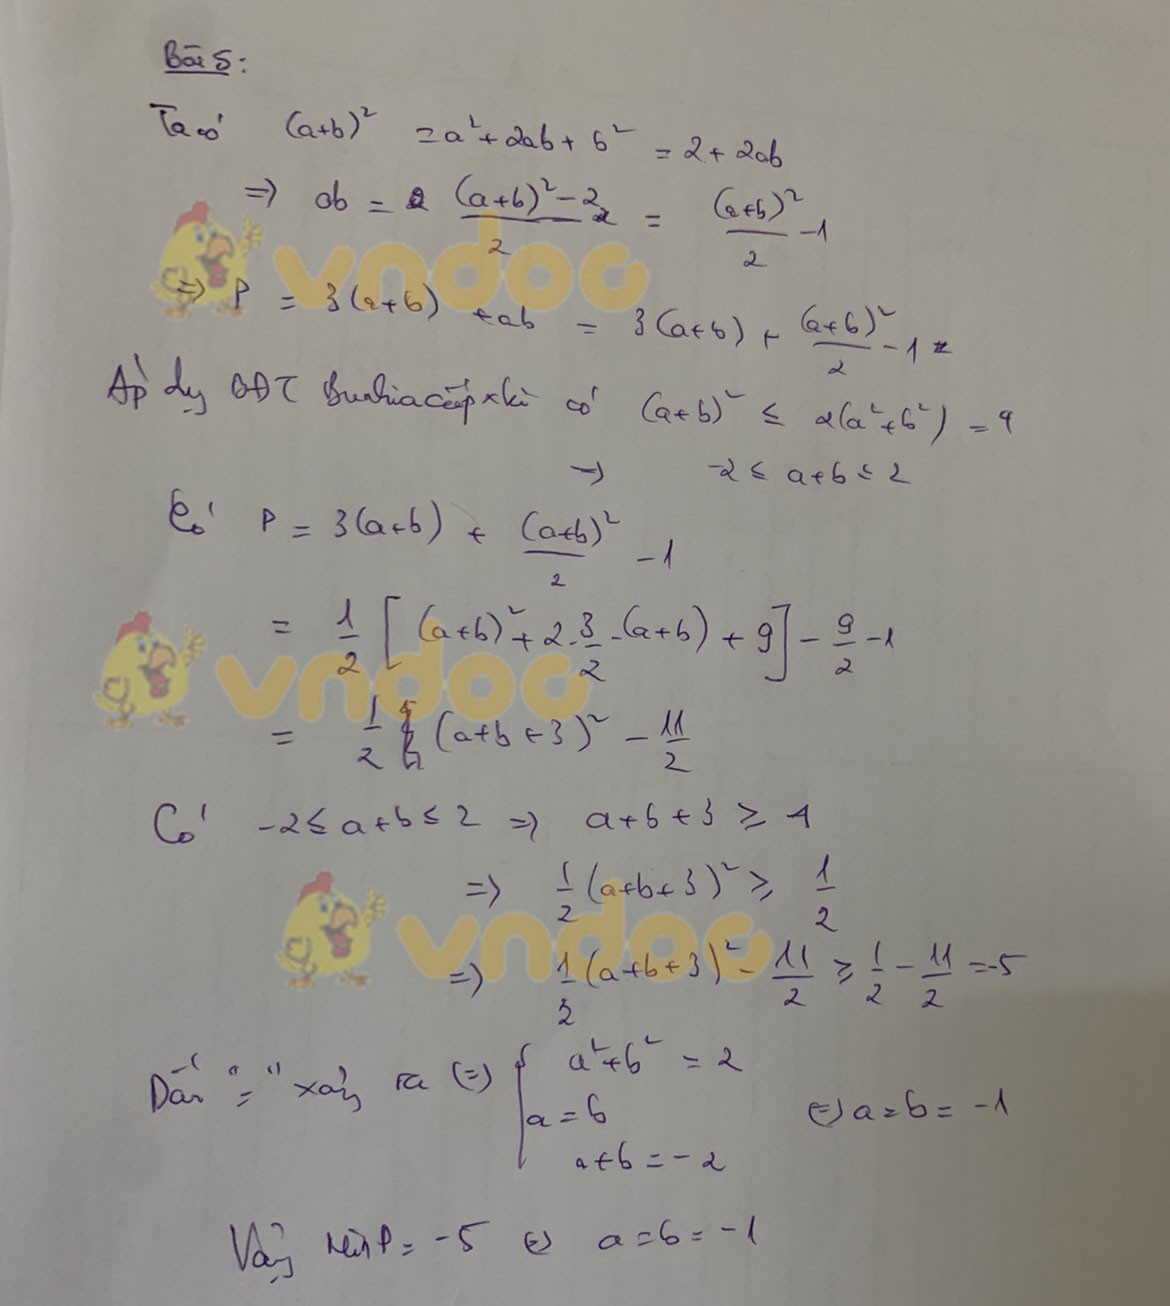 Bài 5:
Ta có (a+b)² = a² + 2ab + b² = 2 + 2ab
=> ab = (a+b)² - 2 / 2 = (a+b)² / 2 - 1
vndoc
=> P = 3(a+b) + ab = 3(a+b) + (a+b)² / 2 - 1
Áp dụng BĐT Bunhiacốpxki có (a+b)² ≤ 2(a²+b²) = 4
→ -2 ≤ a+b ≤ 2
Có P = 3(a+b) + (a+b)² / 2 - 1
= 1/2 [(a+b)² + 2.3/2.(a+b) + 9] - 9/2 - 1
vndoc
= 1/2 (a+b+3)² - 11/2
Có -2 ≤ a+b ≤ 2 => a+b+3 ≥ 1
=> 1/2 (a+b+3)² ≥ 1/2
vndoc
=> 1/2 (a+b+3)² - 11/2 ≥ 1/2 - 11/2 = -5
Dấu "=" xảy ra (=) { a²+b² = 2
a = b (=) a = b = -1
a+b = -2
Vậy Min P = -5 (=) a = b = -1